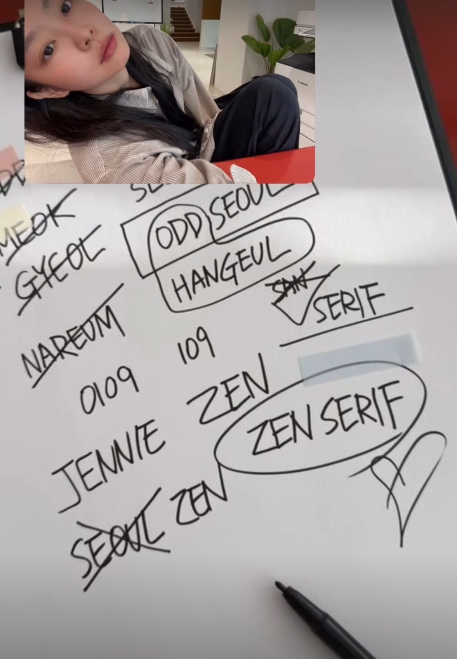 ODD SEOUL
MEOK
GYEOL
HANGEUL
SAN
SERIF
NAREUM
109
0109
ZEN
JENNIE
ZEN SERIF
SEOUL ZEN